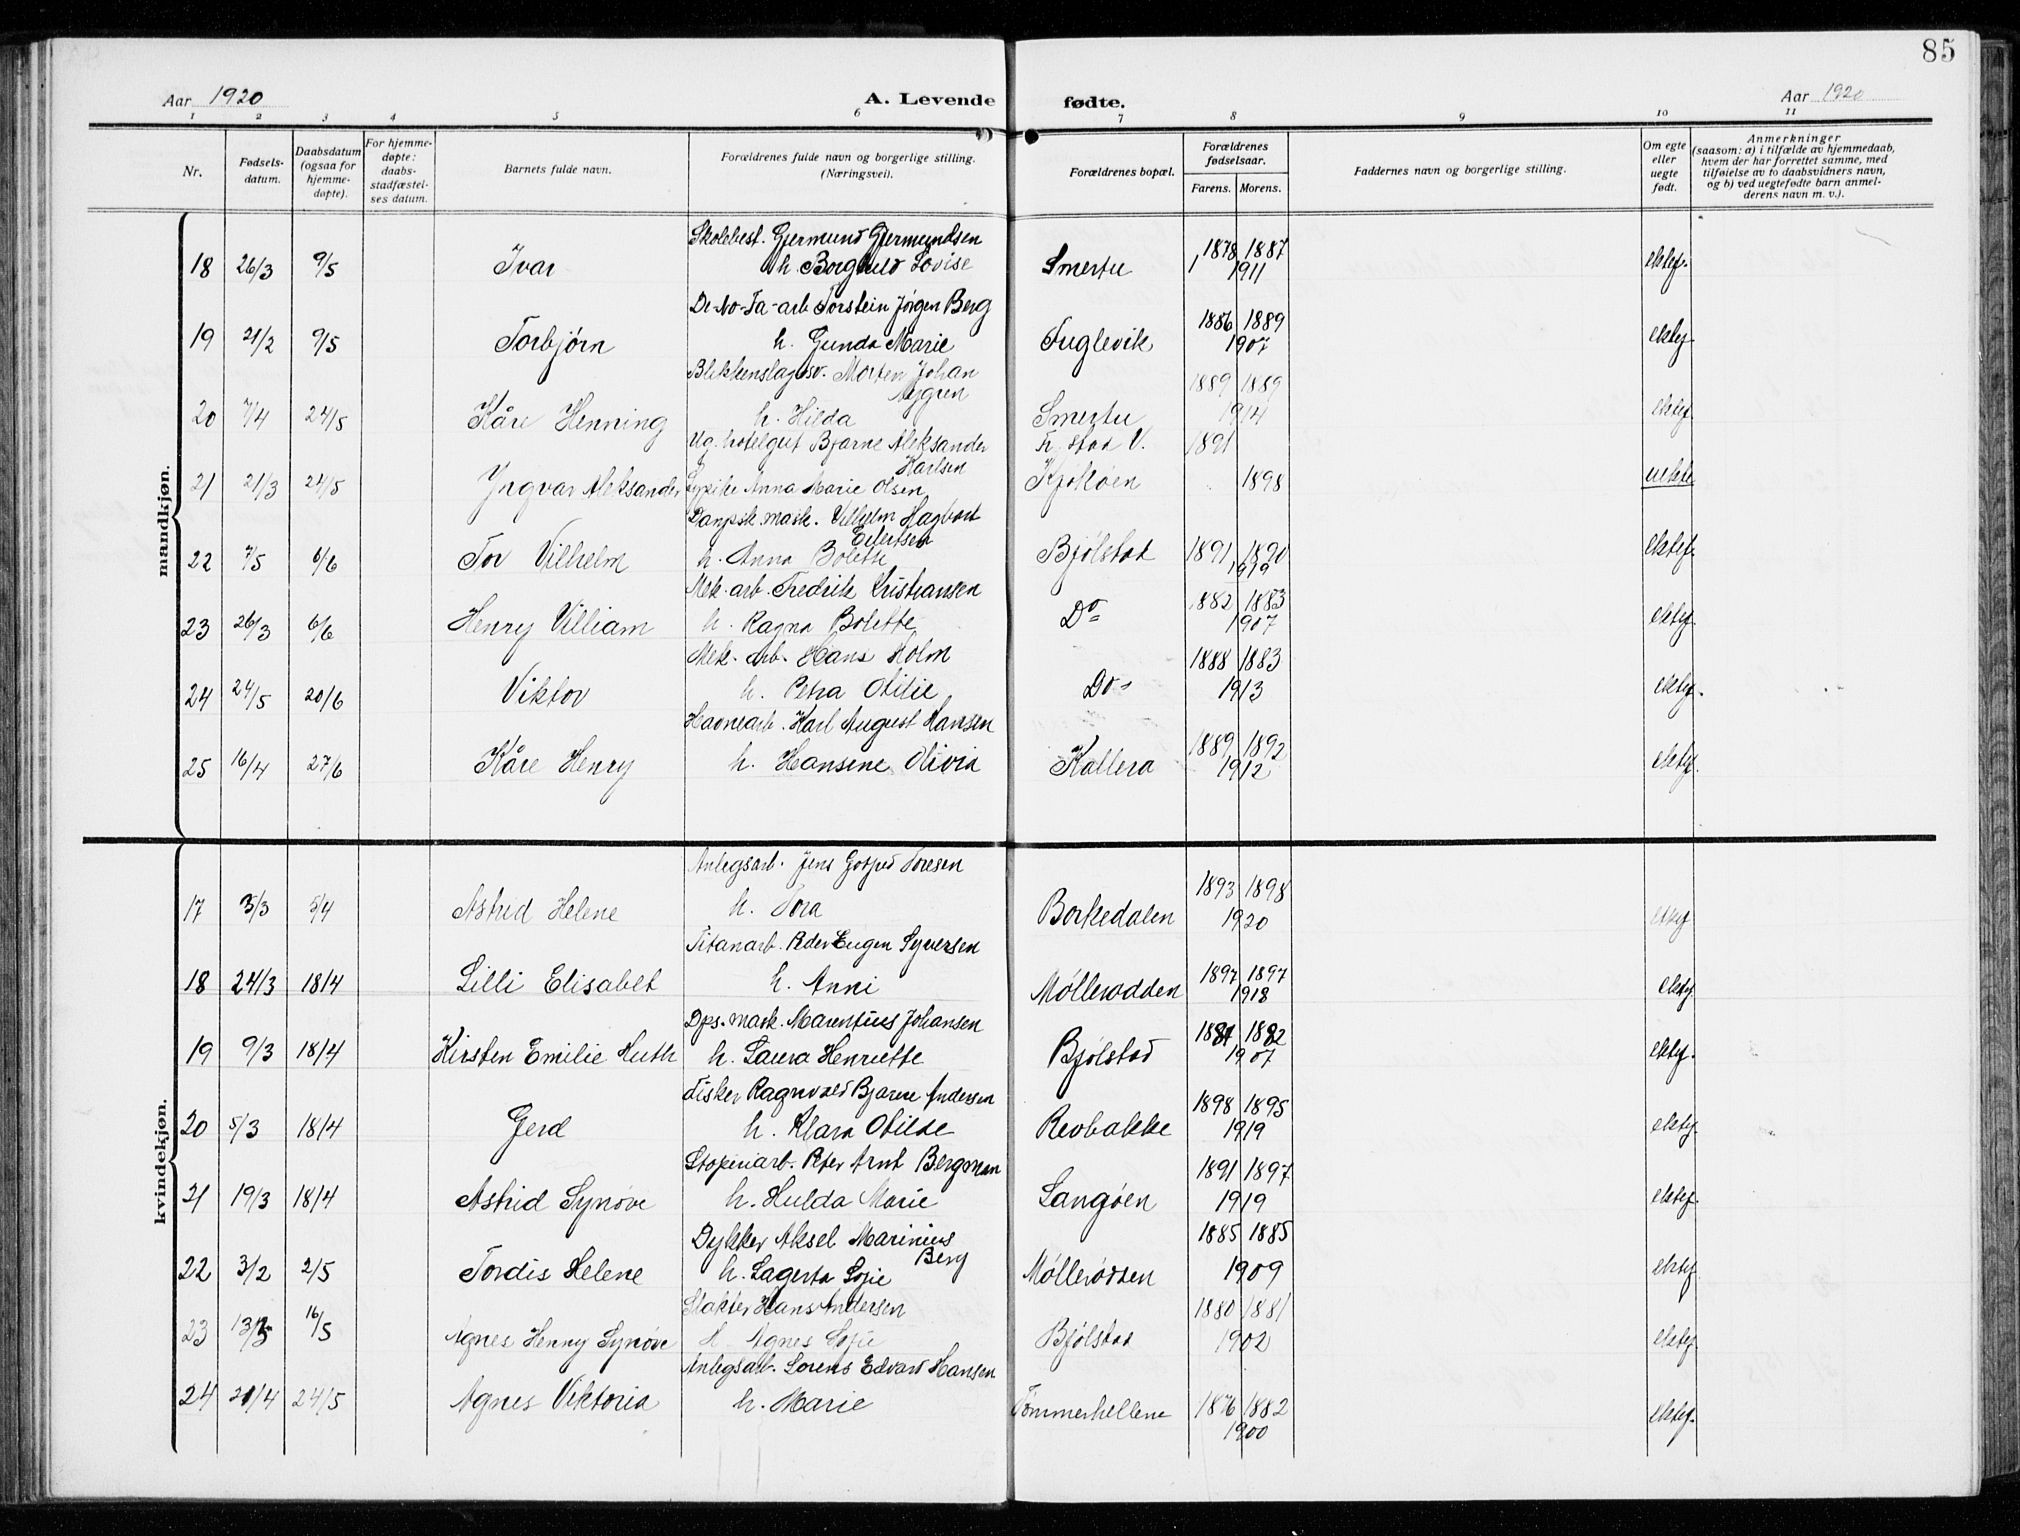 85
Aar 1920
A. Levende fødte.
Aar 1920
1 2 3 4 5 6 7 8 9 10 11
Nr.
Fødsels-
datum.
Daabsdatum
(ogsaa for
hjemme-
døpte).
For hjemme-
døpte:
daabs-
stadfæstel-
ses datum.
Barnets fulde navn.
Forældrenes fulde navn og borgerlige stilling.
(Næringsvei).
Forældrenes bopæl.
Forældrenes
fødselsaar.
Farens. Morens.
Faddernes navn og borgerlige stilling.
Om egte
eller
uegte
født.
Anmerkninger
(saasom: a) i tilfælde av hjemmedaab,
hvem der har forrettet samme, med
tilføielse av to daabsvidners navn,
og b) ved uegtefødte barn anmel-
derens navn m. v.).
mandkjøn.
Skolebest. Gjermund Gjermundsen 1878 1887
18 26/3 9/5 Ivar h. Borghild Lovise Smertu 1911 ektef.
De-No-Fa-arb Torstein Jørgen Berg 1886 1889
19 21/2 9/5 Torbjørn h. Gunda Marie Fuglevik 1907 ektef.
Blikkenslagersv. Morten Johan 1889 1889
Nygren
20 7/4 24/5 Kåre Henning h. Hilda Smertu 1914 ektef
Ug. hotelgut Bjarne Aleksander Fr.stad V. 1891
Karlsen
21 21/3 24/5 Yngvar Aleksander Anna Marie Olsen Kjøkøen 1898 uekte
Dampsk. mask. Vilhelm Hagbart
Eilertsen
22 7/5 6/6 Tor Vilhelm h. Anna Bolette Bjølstad 1891 1890 1919 ektef.
Mek. arb. Fredrik Kristiansen 1882 1883
23 26/3 6/6 Henry Villiam h. Ragna Bolette Do 1907 ektef.
Mek. Arb. Hans Holm 1888 1883
24 24/5 20/6 Viktor h. Petra Otilie Do 1913 ektef.
Havnearb. Karl August Hansen 1889 1892
25 16/4 27/6 Kåre Henry h. Hansine Olivia Kallera 1912 ektef.
kvindekjøn.
Anlegsarb. Jens Gotfred Toresen 1893 1898
17 3/3 5/4 Astrid Helene h. Tora Borkedalen 1920 ektef
Titanarb. Peder Eugen Syversen 1897 1897
18 24/3 18/4 Lilli Elisabet h. Anni Møllerodden 1918 ektef.
Dps. mask. Marentius Johansen 1881 1882
19 9/3 18/4 Kirsten Emilie Huth h. Laura Henriette Bjølstad 1907 ektef.
Fisker Ragnvald Bjarne Andersen 1898 1895
20 5/3 18/4 Gerd h. Klara Otilde Revbakke 1919 ektef.
Støperiarb. Peter Arnt Bergman 1891 1897
21 19/3 18/4 Astrid Synøve h. Hulda Marie Langøen 1919 ektef.
Dykker Aksel Marinius 1885 1885
Berg
22 3/2 2/5 Tordis Helene h. Lagerta Sofie Møllerodden 1909 ektef
Slakter Hans Andersen 1880 1881
23 13/3 16/5 Agnes Henny Synøve h. Agnes Sofie Bjølstad 1902 ektef.
Anlegsarb. Lorens Edvard Hansen
24 21/4 24/5 Agnes Viktoria h. Marie Tømmerhellene 1876 1882 ektef.
1900